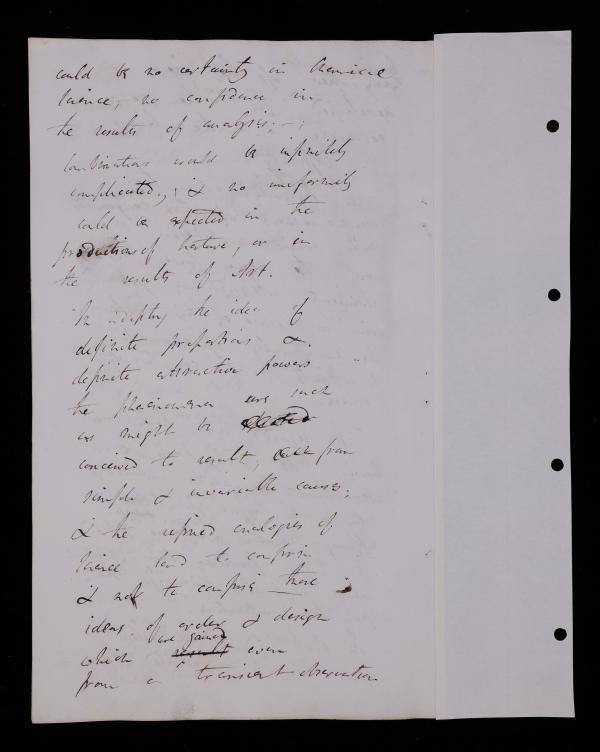 could be no certainty in chemical
science, no confidence in
the results of analysis; -
Combinations would be infinitely
complicated; & no uniformity
could be expected in the
productions of Nature, or in
the results of Art.
In adopting the idea of
definite proportions &
definite attractive powers
the phenomena are such
as might be
conceived to result, from
simple & invariable causes;
& the refined analogies of
science tend to confirm
& not to confuse those
ideas of order & design
which are gained even
from a transient observation